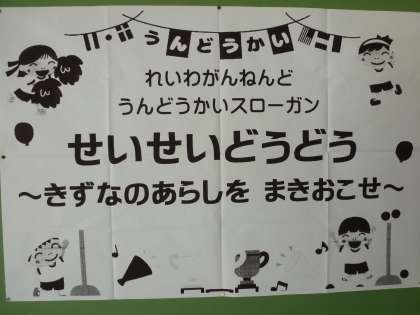 うんどうかい
れいわがんねんど
うんどうかいスローガン
せいせいどうどう
～きずなのあらしを まきおこせ～